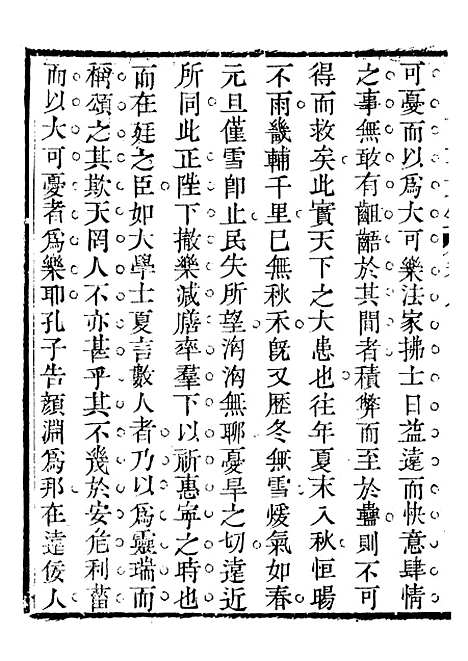 可憂而以爲大可樂法家拂士日益遠而快意肆情
之事無敢有齟齬於其間者積弊而至於蠱則不可
得而救矣此實天下之大患也往年夏末入秋恒暘
不雨畿輔千里巳無秋禾旣又歴冬無雪煖氣如春
元旦僅雪卽止民失所望洶洶無聊憂旱之切遠近
所同此正陛下撤樂减膳率羣下以祈惠寧之時也
而在廷之臣如大學士夏言數人者乃以爲靈瑞而
稱頌之其欺天罔人不亦甚乎其不幾於安危利菑
而以大可憂者爲樂耶孔子告顔淵爲邦在遠佞人